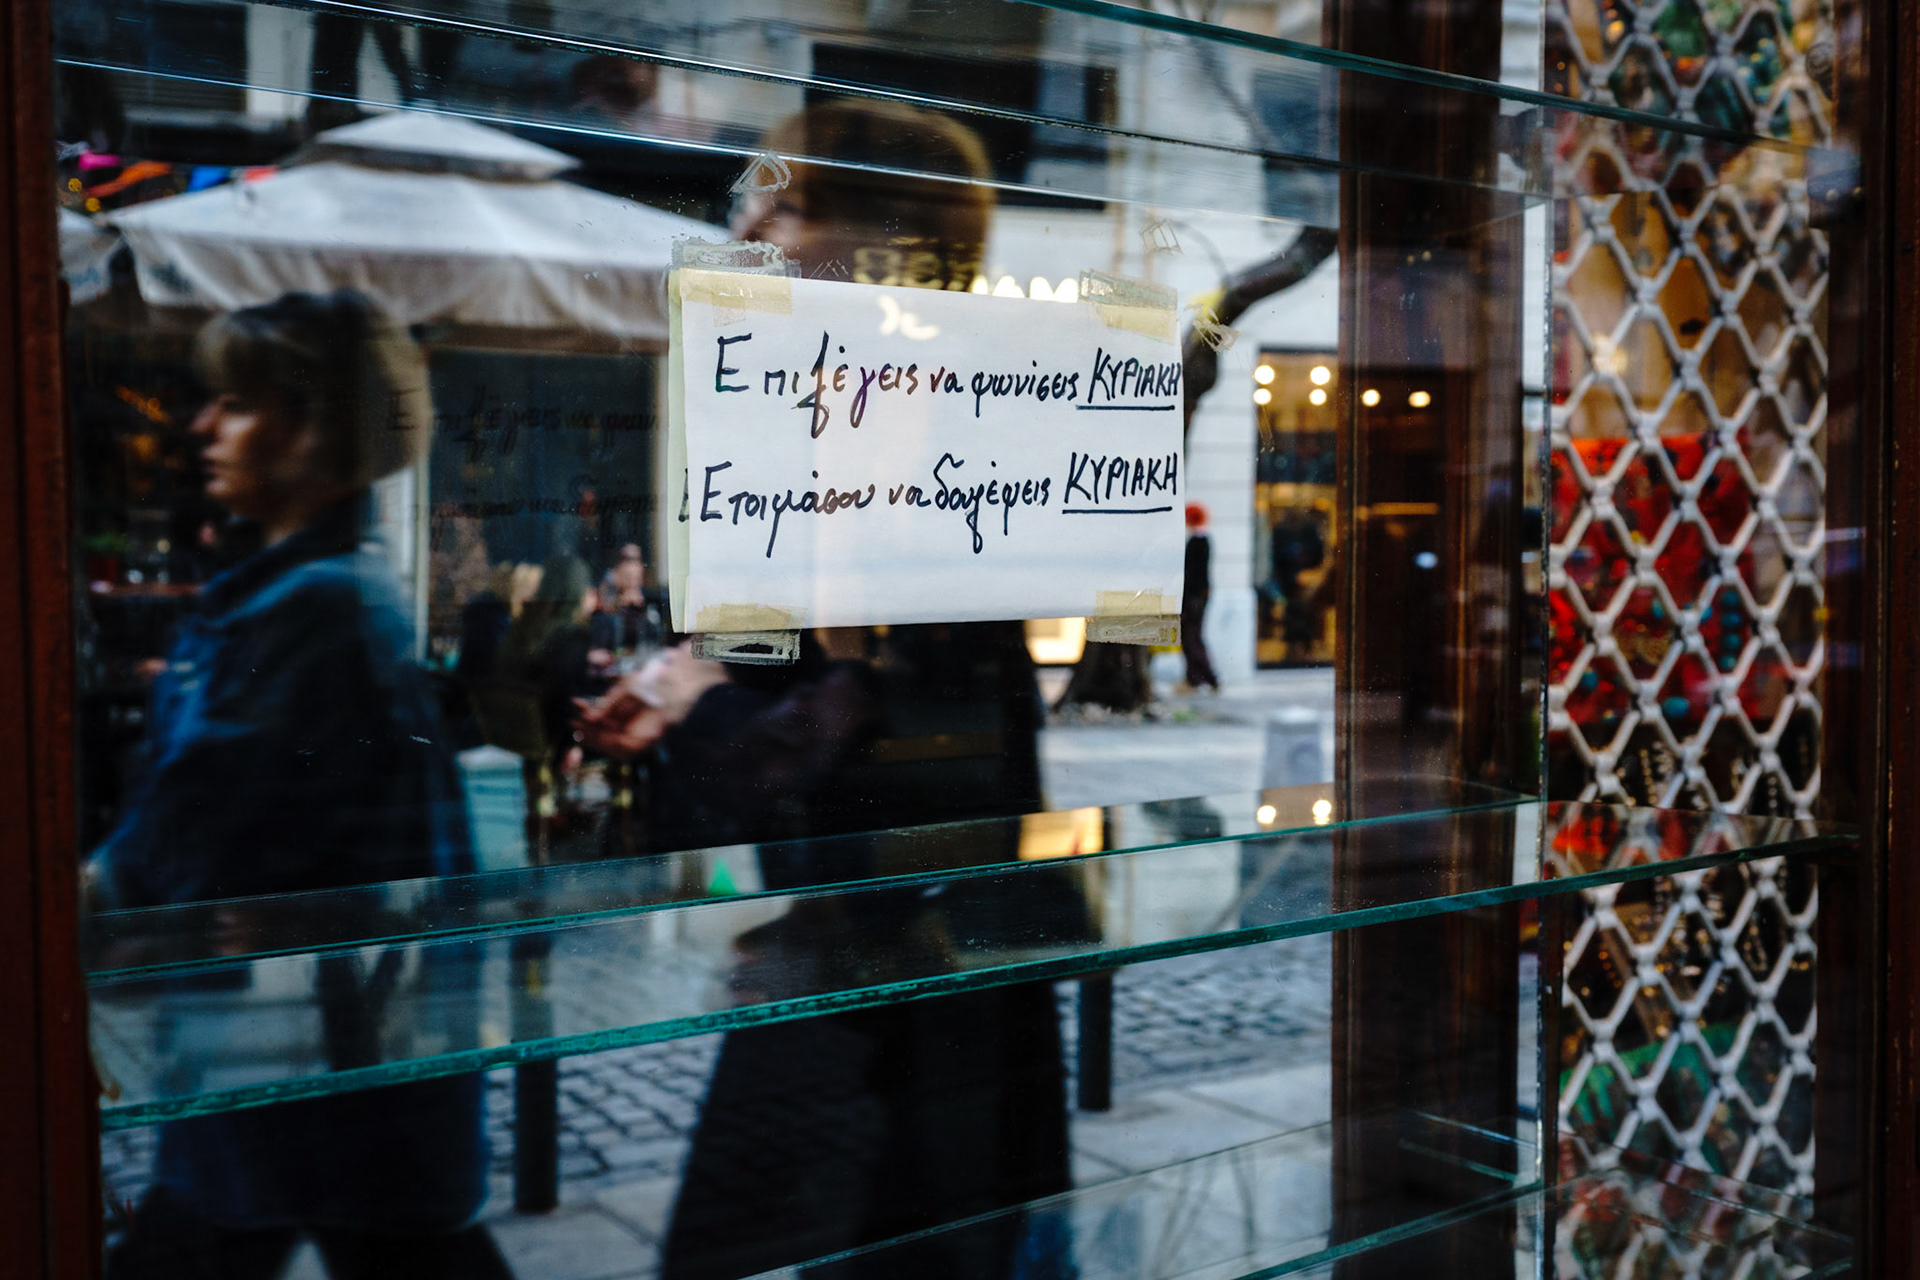 Επιλέγεις να ψωνίσεις ΚΥΡΙΑΚΗ
Ετοιμάσου να δουλέψεις ΚΥΡΙΑΚΗ